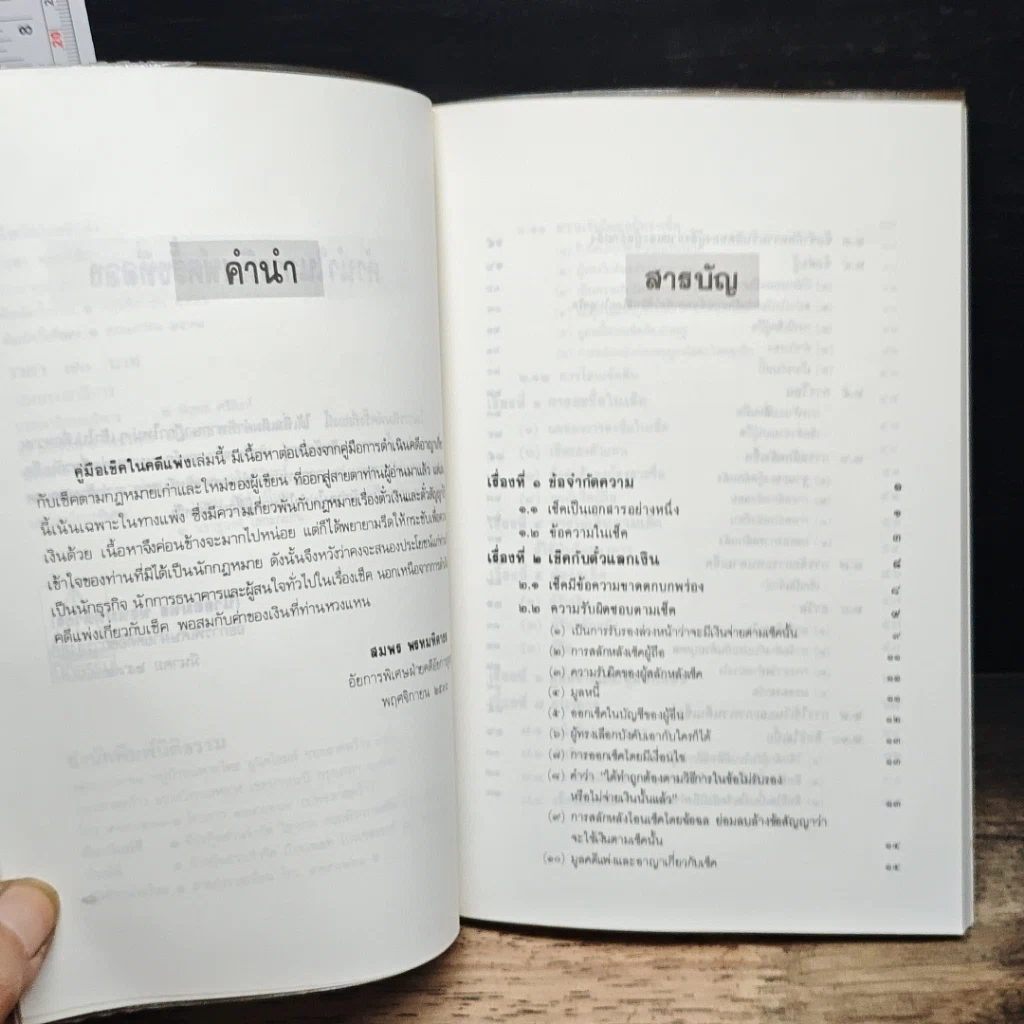 คำนำ
คู่มือเช็คในคดีแพ่งเล่มนี้ มีเนื้อหาต่อเนื่องจากคู่มือการดำเนินคดีอาญาเกี่ยว
กับเช็คตามกฎหมายเก่าและใหม่ของผู้เขียน ที่ออกสู่สายตาท่านผู้อ่านมาแล้ว
นี้เน้นเฉพาะในทางแพ่ง ซึ่งมีความเกี่ยวพันกับกฎหมายเรื่องตั๋วเงินและตั๋วสัญญาใช้
เงินด้วย เนื้อหาจึงค่อนข้างจะมากไปหน่อย แต่ก็ได้พยายามรีดให้กระชับเพื่อความ
เข้าใจของท่านที่มิได้เป็นนักกฎหมาย ดังนั้นจึงหวังว่าคงจะสนองประโยชน์แก่ท่านที่
เป็นนักธุรกิจ นักการธนาคารและผู้สนใจทั่วไปในเรื่องเช็ค นอกเหนือจากการ
คดีแพ่งเกี่ยวกับเช็ค พอสมกับค่าของเงินที่ท่านหวงแหน
สมพร พรหมหิตาธร
อัยการพิเศษฝ่ายคดี
พฤศจิกายน
สารบัญ
เรื่องที่ ๑ ข้อจำกัดความ ๑
๑.๑ เช็คเป็นเอกสารอย่างหนึ่ง ๑
๑.๒ ข้อความในเช็ค ๓
เรื่องที่ ๒ เช็คกับตั๋วแลกเงิน ๘
๒.๑ เช็คมีข้อความขาดตกบกพร่อง ๘
๒.๒ ความรับผิดชอบตามเช็ค ๙
(๑) เป็นการรับรองล่วงหน้าว่าจะมีเงินจ่ายตามเช็คนั้น ๙
(๒) การสลักหลังเช็คผู้ถือ ๑๑
(๓) ความรับผิดของผู้สลักหลังเช็ค ๑๑
(๔) มูลหนี้ ๑๑
(๕) ออกเช็คในบัญชีของผู้อื่น ๑๒
(๖) ผู้ทรงเลือกบังคับเอากับใครก็ได้ ๑๓
(๗) การออกเช็คโดยมีเงื่อนไข ๑๓
(๘) คำว่า "ได้ทำถูกต้องตามวิธีการในข้อไม่รับรอง
หรือไม่จ่ายเงินนั้นแล้ว" ๑๓
(๙) การสลักหลังโอนเช็คโดยฉ้อฉล ย่อมลบล้างข้อสัญญาว่า
จะใช้เงินตามเช็คนั้น ๑๔
(๑๐) มูลคดีแพ่งและอาญาเกี่ยวกับเช็ค ๑๔